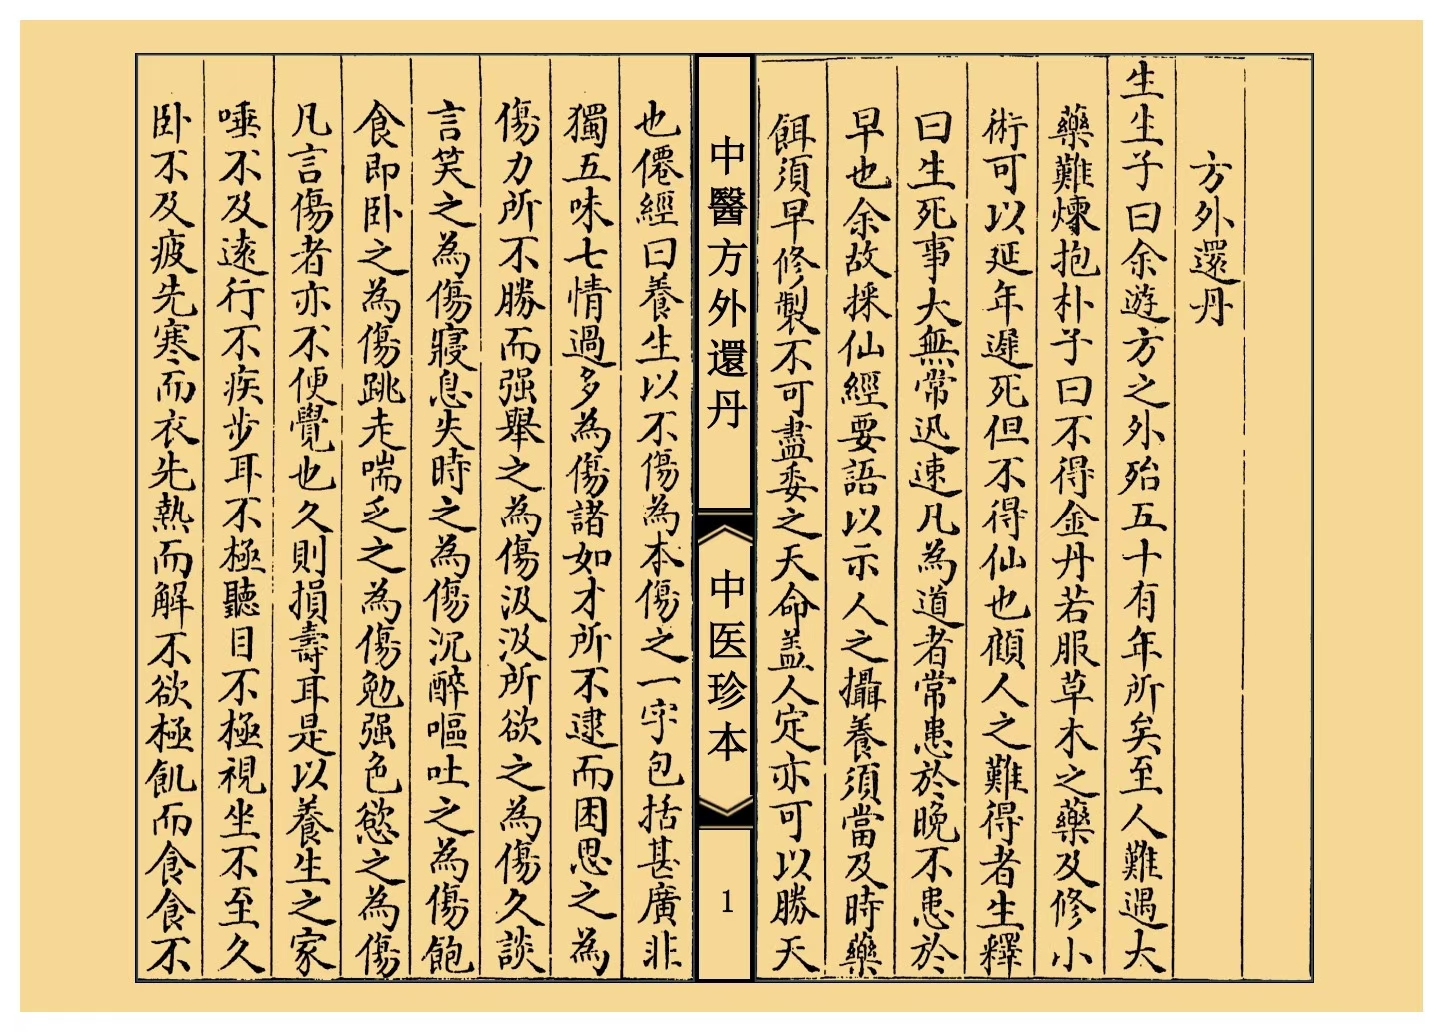 方外還丹
生生子曰余遊方之外殆五十有年所矣至人難遇大
藥難煉抱朴子曰不得金丹若服草木之藥及修小
術可以延年遲死但不得仙也顧人之難得者生釋
曰生死事大無常迅速凡為道者常患於晚不患於
早也余故採仙經要語以示人之攝養須當及時藥
餌須早修製不可盡委之天命盖人定亦可以勝天
中醫方外還丹
中医珍本
1
也僊經曰養生以不傷為本傷之一字包括甚廣非
獨五味七情過多為傷諸如才所不逮而困思之為
傷力所不勝而强舉之為傷汲汲所欲之為傷久談
言笑之為傷寢息失時之為傷沉醉嘔吐之為傷飽
食即卧之為傷跳走喘乏之為傷勉强色慾之為傷
凡言傷者亦不便覺也久則損壽耳是以養生之家
唾不及遠行不疾步耳不極聽目不極視坐不至久
卧不及疲先寒而衣先熱而解不欲極飢而食食不